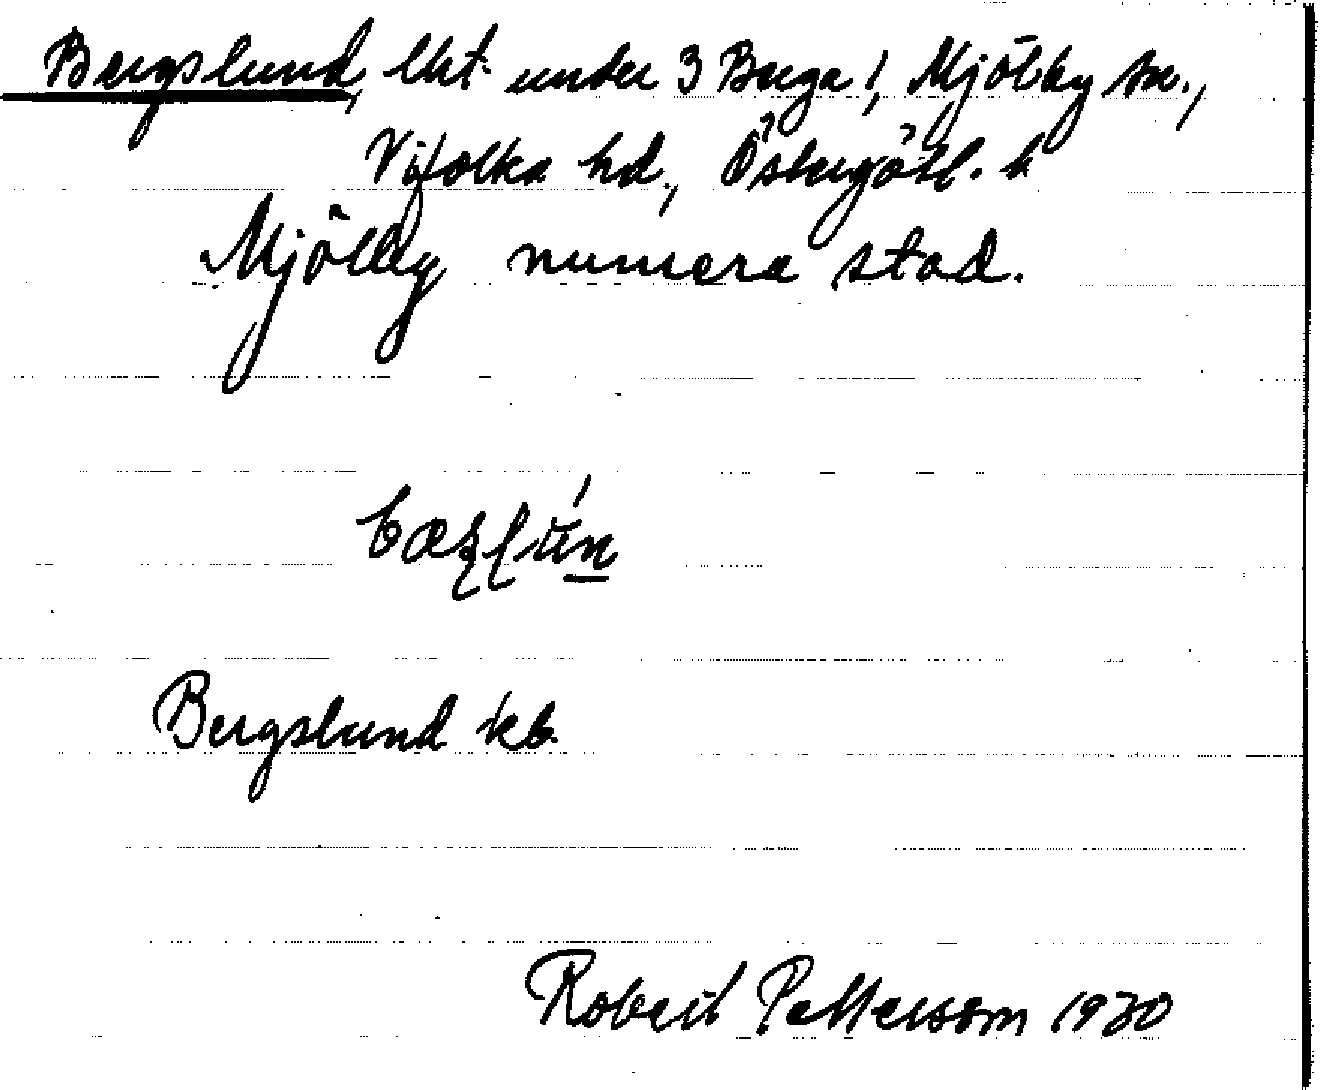 Bergslund, lht. under 3 Berga!, Mjölby sn.,
Vifolka hd., Östergötl. l.
Mjölby numera stad.
Bergslund kb.
Robert Pettersson 1930